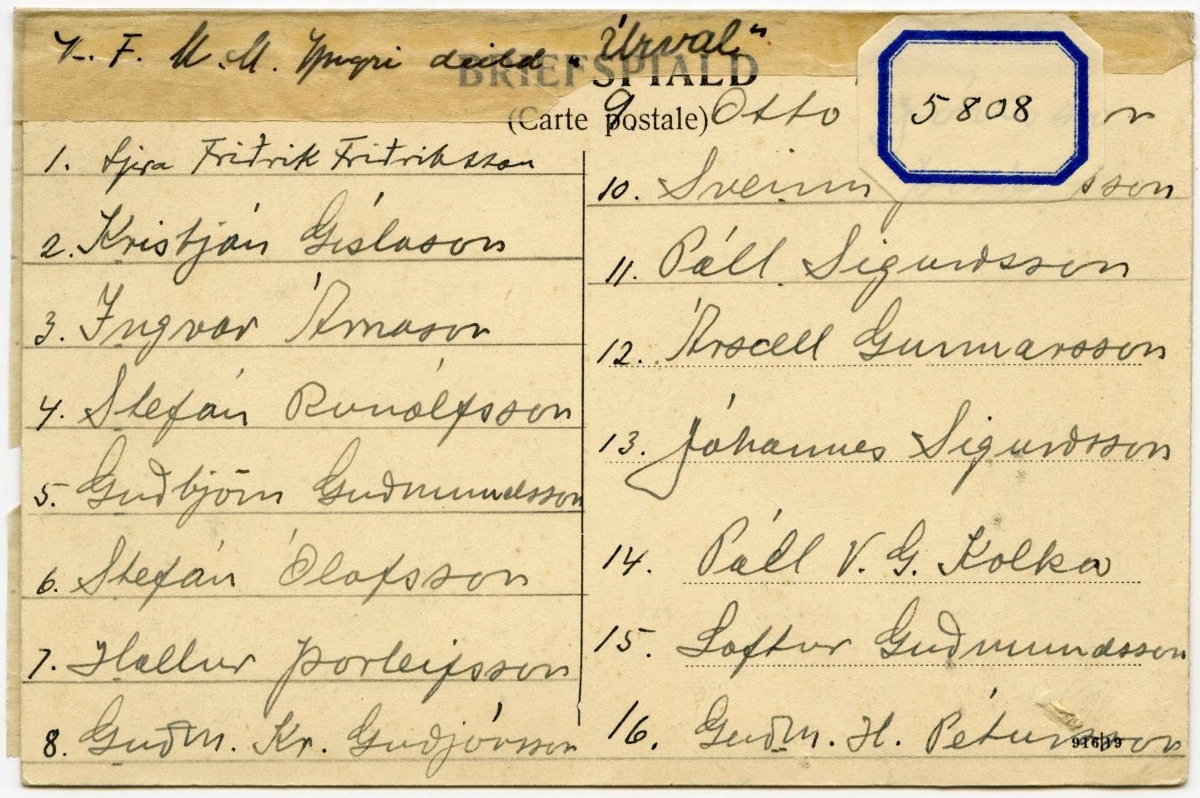 K. F. U. M. Yngri deild „Úrval“
BRJEFSPJALD
(Carte postale)
5808
1. Sjera Friðrik Friðriksson
2. Kristján Gíslason
3. Ingvar Árnason
4. Stefán Runólfsson
5. Guðbjörn Guðmundsson
6. Stefán Ólafsson
7. Hallur Þorleifsson
8. Guðm. Kr. Guðjónsson
9. Otto
10. Sveinn
11. Páll Sigurðsson
12. Ársæll Gunnarsson
13. Jóhannes Sigurðsson
14. Páll V. G. Kolka
15. Loftur Guðmundsson
16. Guðm. H. Pétursson
916|19